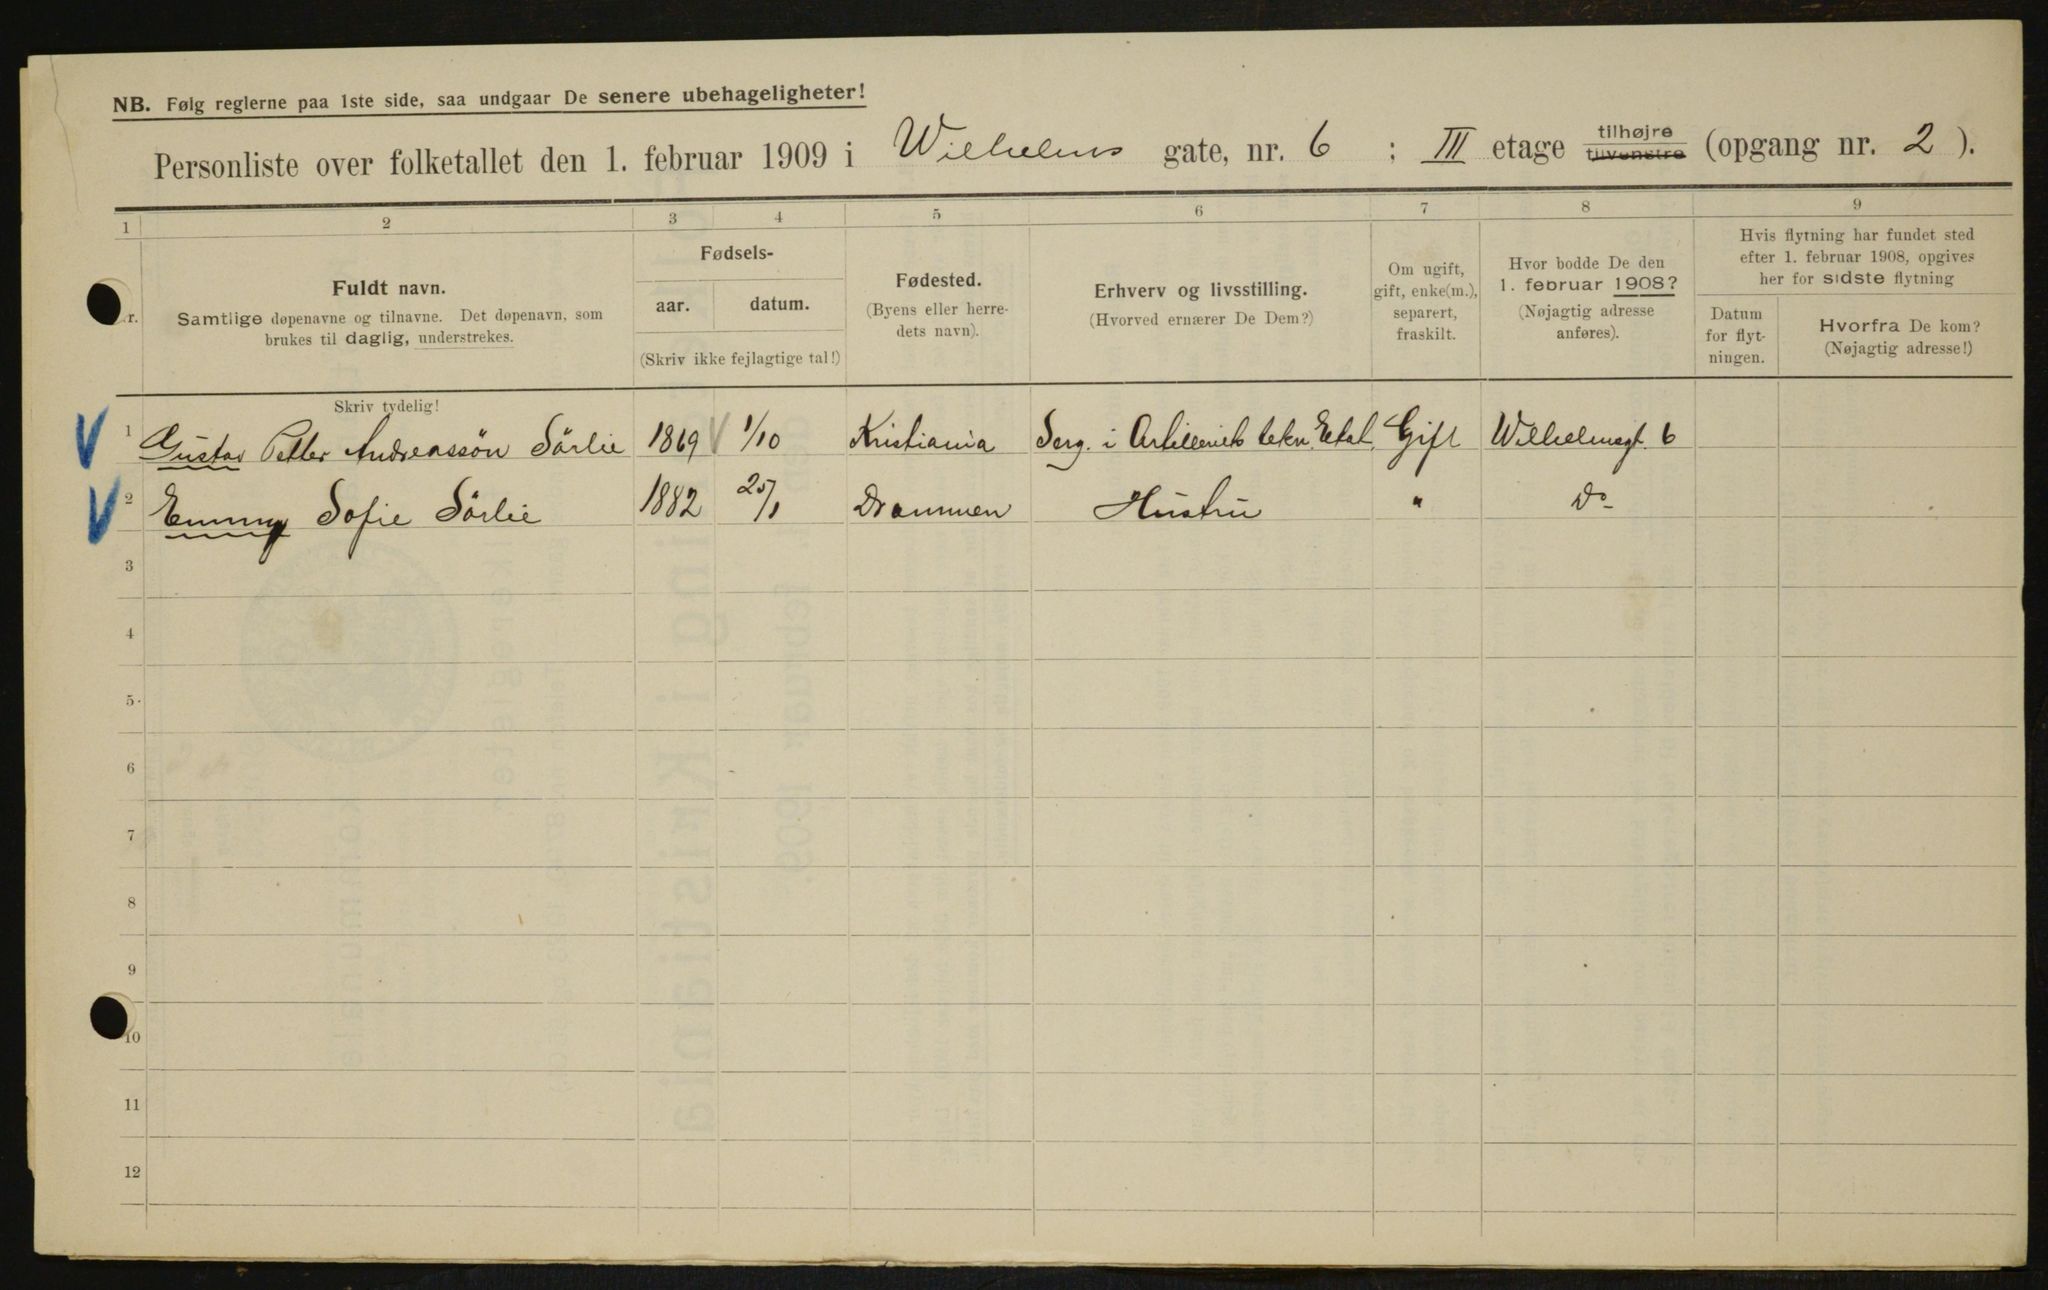 NB. Følg reglerne paa 1ste side, saa undgaar De senere ubehageligheter!
Personliste over folketallet den 1. februar 1909 i Wilhelms gate, nr. 6 ; III etage tilhøjre tilvenstre (opgang nr. 2 ).
1 2 3 4 5 6 7 8 9
Fuldt navn.
Samtlige døpenavne og tilnavne. Det døpenavn, som
brukes til daglig, understrekes.
Fødsels-
aar. datum.
(Skriv ikke fejlagtige tal!)
Fødested.
(Byens eller herre-
dets navn).
Erhverv og livsstilling.
(Hvorved ernærer De Dem?)
Om ugift,
gift, enke(m.),
separert,
fraskilt.
Hvor bodde De den
1. februar 1908?
(Nøjagtig adresse
anføres).
Hvis flytning har fundet sted
efter 1. februar 1908, opgives
her for sidste flytning
Datum
for flyt-
ningen.
Hvorfra De kom?
(Nøjagtig adresse!)
r.
Skriv tydelig!
1 Gustav Petter Andreassön Sörlie 1869 1/10 Kristiania Serg. i Artilleriets tekn. Etat. Gift Wilhelmsgt. 6
2 Emmy Sofie Sörlie 1882 25/1 Drammen Hustru " Do
3
4
5
6
7
8
9
10
11
12